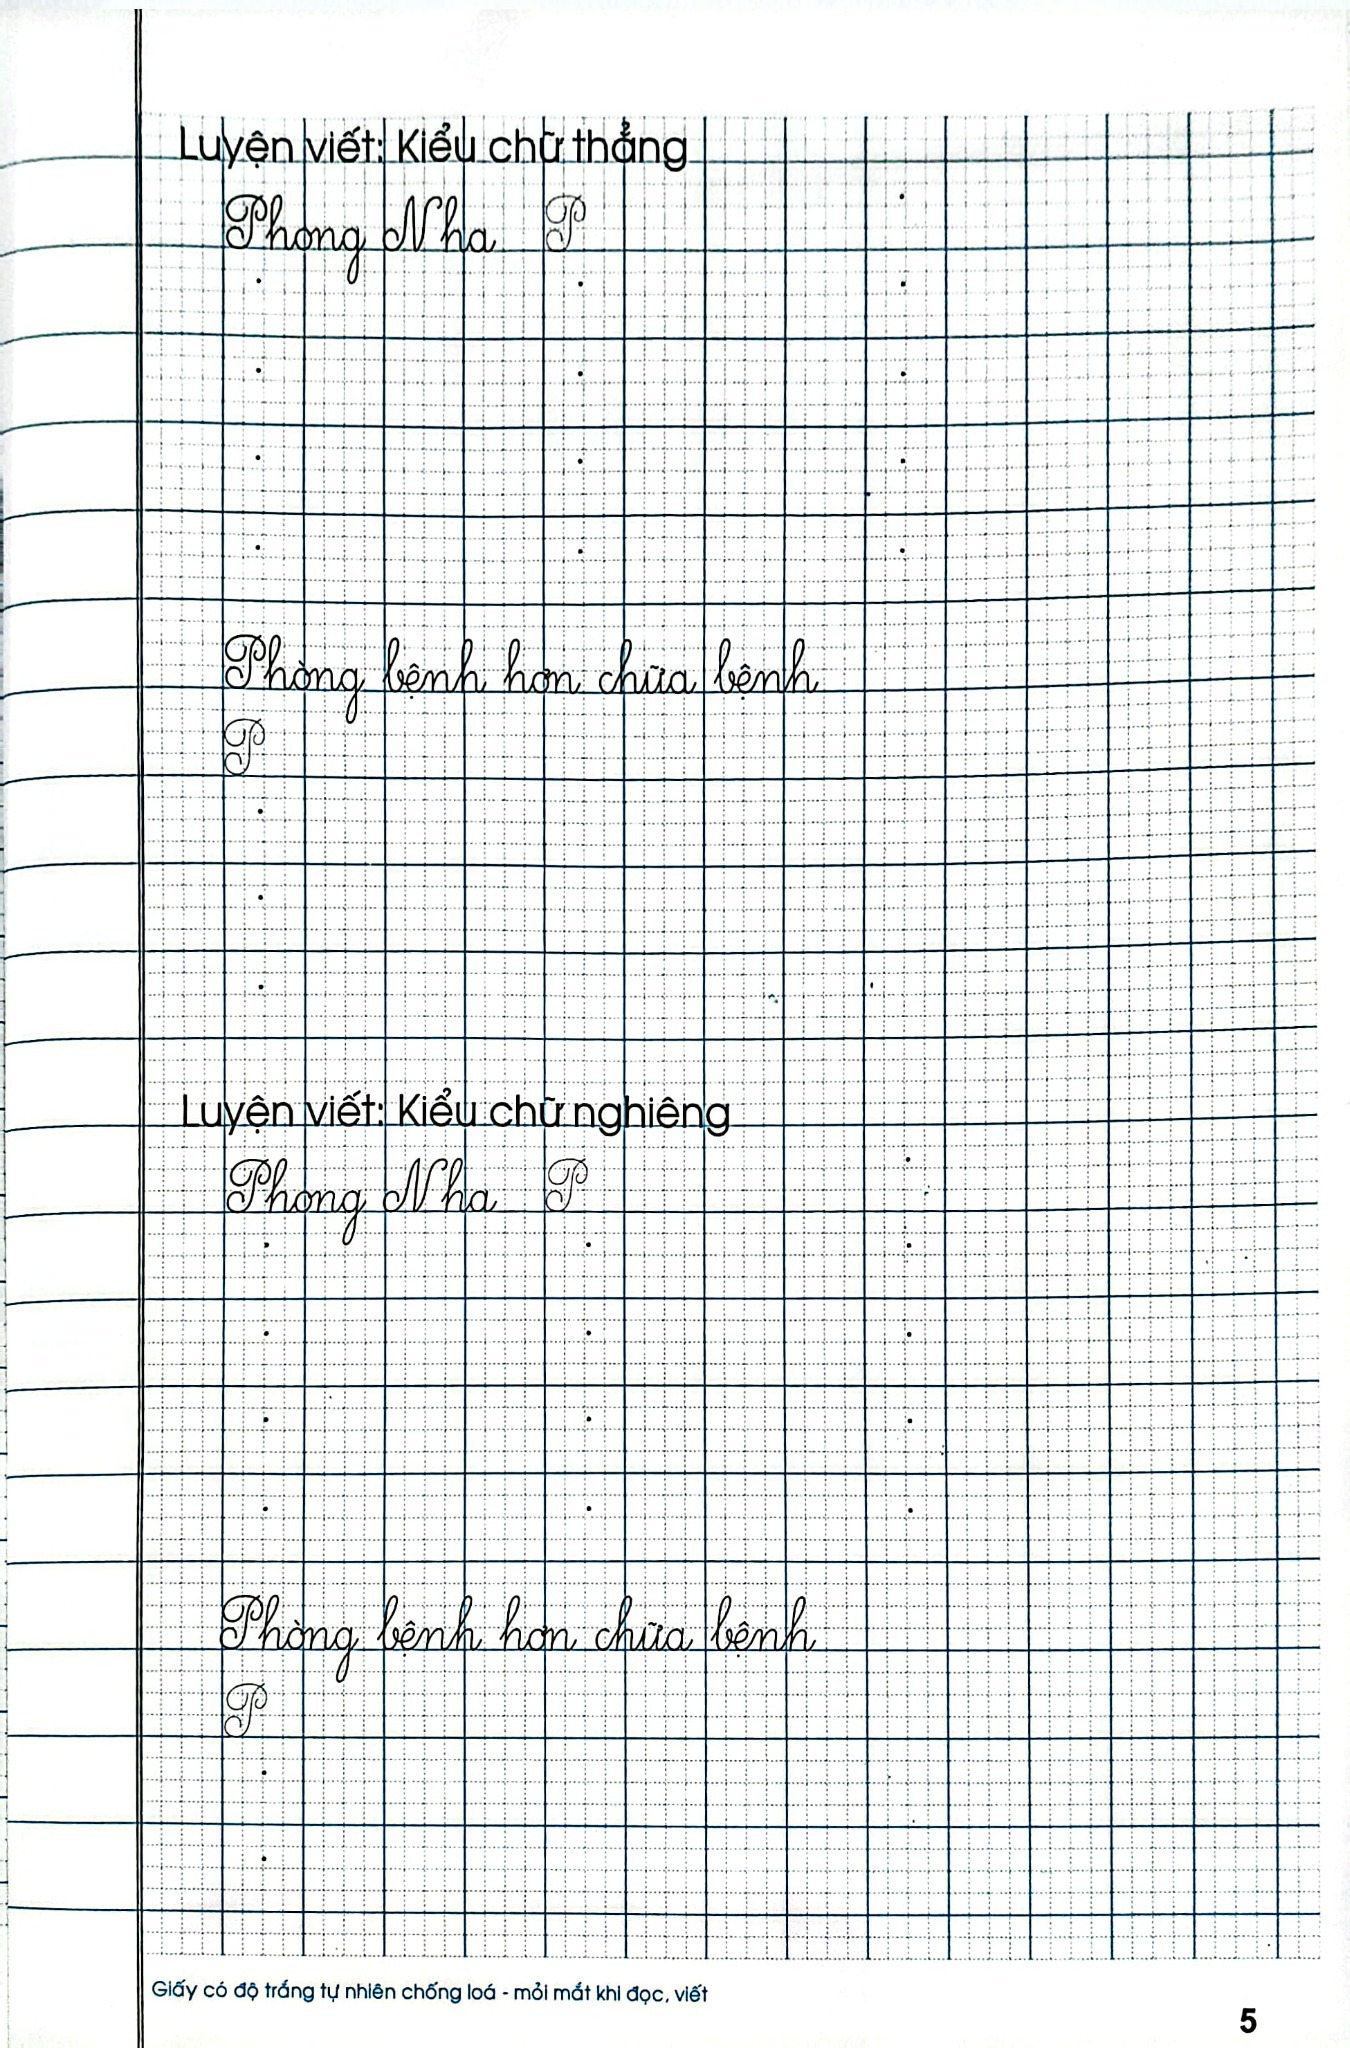 Luyện viết: Kiểu chữ thẳng
Phong Nha P
Phòng bệnh hơn chữa bệnh
P
Luyện viết: Kiểu chữ nghiêng
Phong Nha P
Phòng bệnh hơn chữa bệnh
P
Giấy có độ trắng tự nhiên chống loá - mỏi mắt khi đọc, viết
5